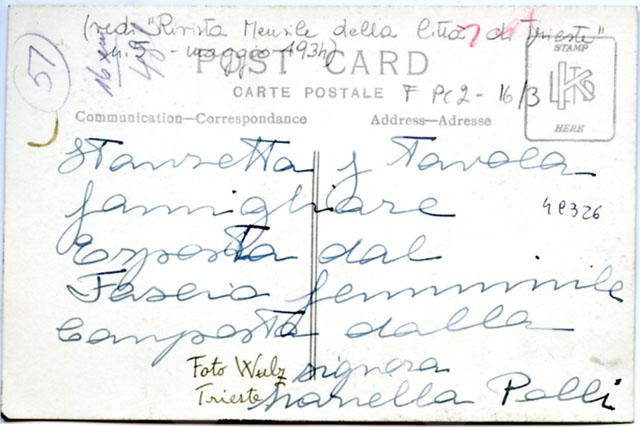 (vedi "Rivista Mensile della Città di Trieste"
n. 5 - maggio 1934)
57
POST CARD
CARTE POSTALE
F PC2 - 16/3
STAMP
HERE
Communication—Correspondence
Address—Adresse
Stanzetta
Tavola
famigliare
4e326
Esposta dal
Fascio femminile
Composta dalla
signora
Foto Wulz
Trieste
Polli